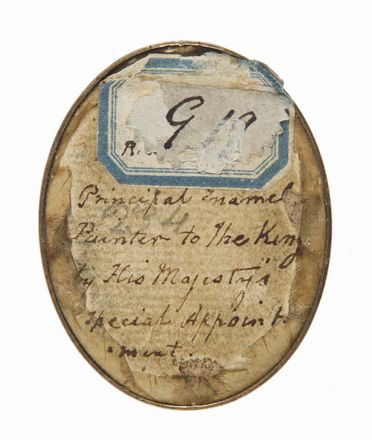 G
R.
Principal Enamel
Painter to The King
by His Majesty's
Special Appoint
ment.